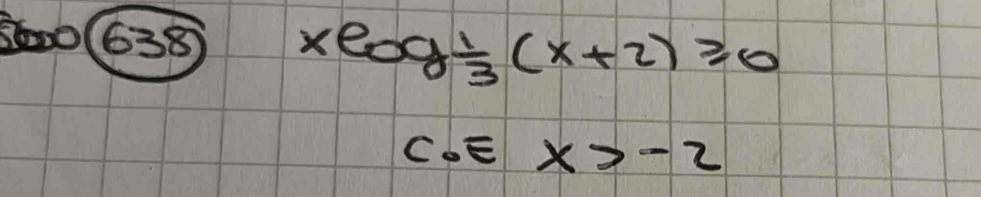 638 x log 1/3 (x+2) ≥ 0
C.E x > -2